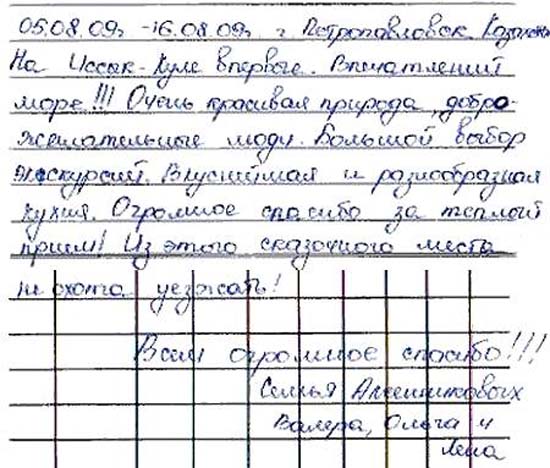 05.08.09г -16.08.09г г. Петропавловск Казахст
На Иссык-Куле впервые. Впечатлений
море!!! Очень красивая природа, добро-
желательные люди. Большой выбор
экскурсий. Вкуснейшая и разнообразная
кухня. Огромное спасибо за теплый
прием! Из этого сказочного места
не охота уезжать!
Всем огромное спасибо!!!
Семья
Валера, Ольга и
Лена